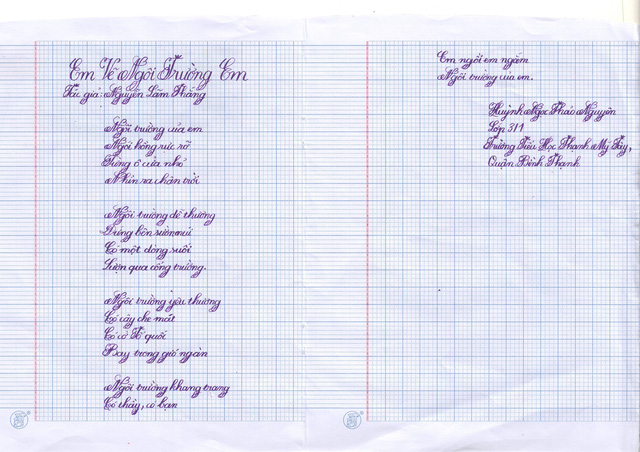 Em Vẽ Ngôi Trường Em
Tác giả: Nguyễn Lãm Thắng
Ngôi trường của em
Ngói hồng rực rỡ
Từng ô cửa nhỏ
Nhìn ra chân trời
Ngôi trường dễ thương
Đứng bên sườn núi
Có một dòng suối
Lượn qua cổng trường.
Ngôi trường yêu thương
Có cây che mát
Có cờ Tổ quốc
Bay trong gió ngàn
Ngôi trường khang trang
Có thầy, có bạn
Em ngồi em ngắm
Ngôi trường của em.
Huỳnh Ngọc Thảo Nguyên
Lớp 3/1
Trường Tiểu Học Thanh Mỹ Tây,
Quận Bình Thạnh